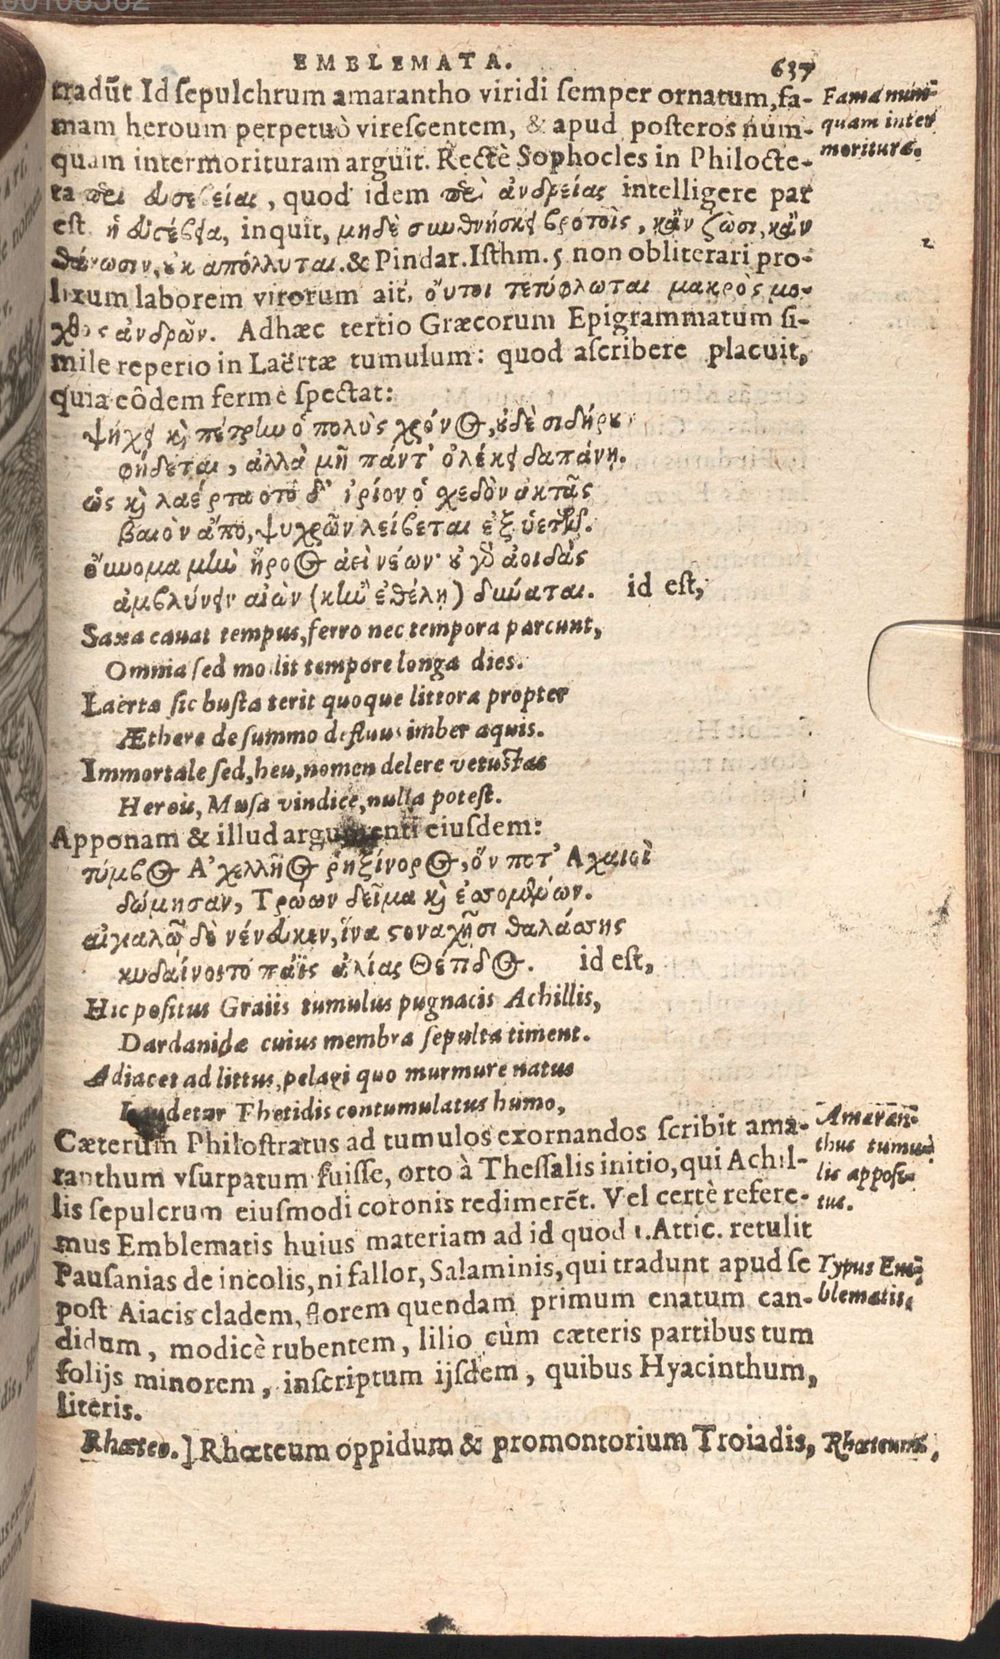 EMBLEMATA. 637
tradūt Id sepulchrum amarantho viridi semper ornatum, fa-
mam heroum perpetuò virescentem, & apud posteros num-
quam intermorituram arguit. Rectè Sophocles in Philocte-
ta περὶ εὐσεβείας, quod idem περὶ ἀνδρείας intelligere par
est. ἡ εὐσέβεια, inquit, μηδὲ συνθνήσκει βροτοῖς, κἂν ζῶσι, κἂν
θάνωσιν, οὐκ ἀπόλλυται. & Pindar. Isthm. 5 non obliterari pro-
lixum laborem virorum ait, οὔτοι τετύφλωται μακρὸς μο-
χθος ἀνδρῶν. Adhæc tertio Græcorum Epigrammatum si-
mile reperio in Laërtæ tumulum: quod ascribere placuit,
quia eôdem ferme spectat:
ψήχει καὶ πέτρην ὁ πολὺς χρόνος, οὐδὲ σιδήρου
φείδεται, ἀλλὰ μιῆ πάντ' ὀλέκει δαπάνη.
ὡς καὶ λαέρταο τὸ δ' ἠρίον ὁ σχεδὸν ἀκτᾶς
βαιὸν ἄπο, ψυχρῶν λείβεται ἐξ ὑετῶν.
οὔνομα μὴν ἥρωος ἀεὶ νέων· οὐ γὰρ ἀοιδὰς
ἀμβλύνειν αἰὼν (κἢν ἐθέλῃ) δύναται. id est,
Saxa cauat tempus, ferro nec tempora parcunt,
Omnia sed mollit tempore longa dies.
Laërtæ sic busta terit quoque littora propter
Æthere de summo defluus imber aquis.
Immortale sed, heu, nomen delere vetustas
Herois, Musa vindice, nulla potest.
Apponam & illud argumenti eiusdem:
τύμβος Ἀχιλλῆος ῥηξήνορος, ὅν ποτ' Ἀχαιοὶ
δώμησαν, Τρώων δεῖμα καὶ ἐσσομένων.
αἰγιαλῷ δὲ νένευκεν, ἵνα στοναχῇσι θαλάσσης
κυδαίνοιτο πάϊς ἁλίας Θέτιδος. id est,
Hic positus Graiis tumulus pugnacis Achillis,
Dardanidæ cuius membra sepulta timent.
Adiacet ad littus, pelagi quo murmure natus
Laudetur Thetidis contumulatus humo,
Cæterum Philostratus ad tumulos exornandos scribit ama-
ranthum vsurpatum fuisse, orto à Thessalis initio, qui Achil-
lis sepulcrum eiusmodi coronis redimerēt. Vel certè refere-
mus Emblematis huius materiam ad id quod 1. Attic. retulit
Pausanias de incolis, ni fallor, Salaminis, qui tradunt apud se
post Aiacis cladem, florem quendam primum enatum can-
didum, modicè rubentem, lilio cùm cæteris partibus tum
folijs minorem, inscriptum ijsdem, quibus Hyacinthum,
literis.
Rhœteo.] Rhœteum oppidum & promontorium Troiadis,
Fama num-
quam inter
moritura.
Amaran-
thus tumu-
lis apposi-
tus.
Typus Em-
blematis.
Rhœteum,